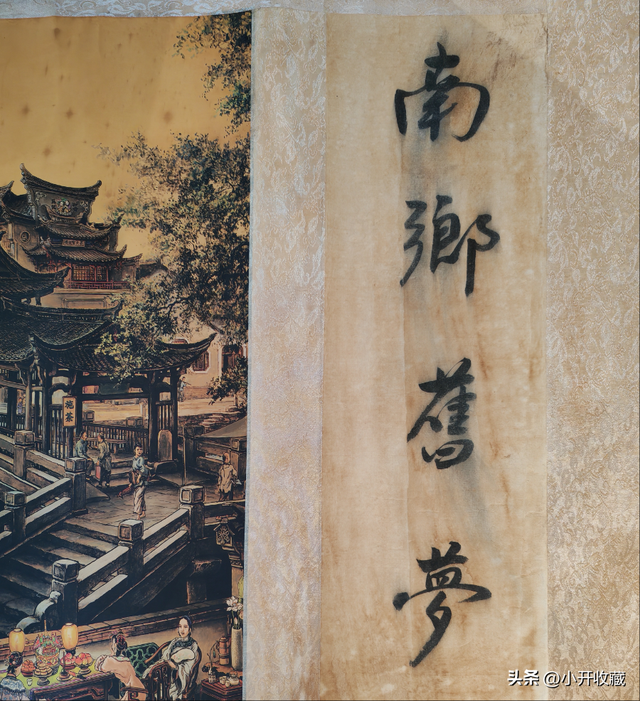 南鄉舊夢
頭条 @小开收藏